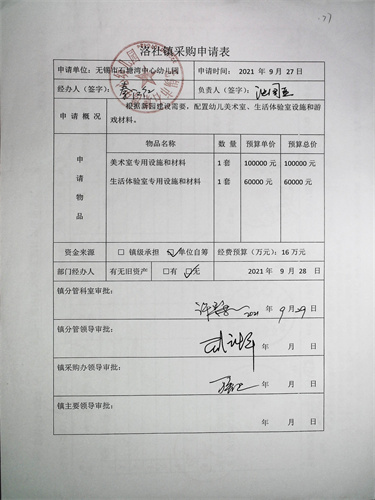 洛社镇采购申请表
申请单位：无锡市石塘湾中心幼儿园 申请时间： 2021 年 9 月 27 日
经办人（签字）： 负责人（签字）：
申请概况 根据新园建设需要，配置幼儿美术室、生活体验室设施和游
戏材料。
申请物品 物品名称 数 量 预算单价 预算总价
美术室专用设施和材料 1 套 100000 元 100000 元
生活体验室专用设施和材料 1 套 60000 元 60000 元
资金来源 □ 镇级承担 ☑ 单位自筹 经费预算（万元）：16 万元
部门经办人 有无旧资产 □有 ☑无 2021 年 9 月 28 日
镇分管科室审批：
2021 年 9 月 29 日
镇分管领导审批：
年 月 日
镇采购办领导审批：
年 月 日
镇主要领导审批：
年 月 日